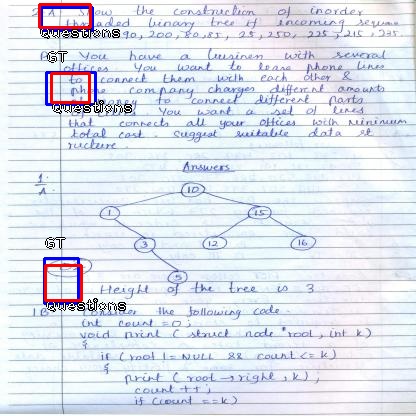 2 A Show the construction of inorder
threaded binary tree if incoming
90, 200, 80, 85, 95, 250, 225, 215, 235.
GT
Questions
You have a business with several
offices You want to lease phone lines
to connect them with each other &
phone company charges different amounts
to connect different parts
You want a set of lines
that connects all your offices with minimum
total cost suggest suitable data st
ructure
GT
Questions
Answers
1.
A.
10
1 15
3 12 16
5
GT
Height of the tree is 3
Questions
1B Consider the following code.
int count = 0;
void print (struct node *root, int k)
{
if (root != NULL && count <= k)
{
print (root → right, k);
count ++;
if (count == k)